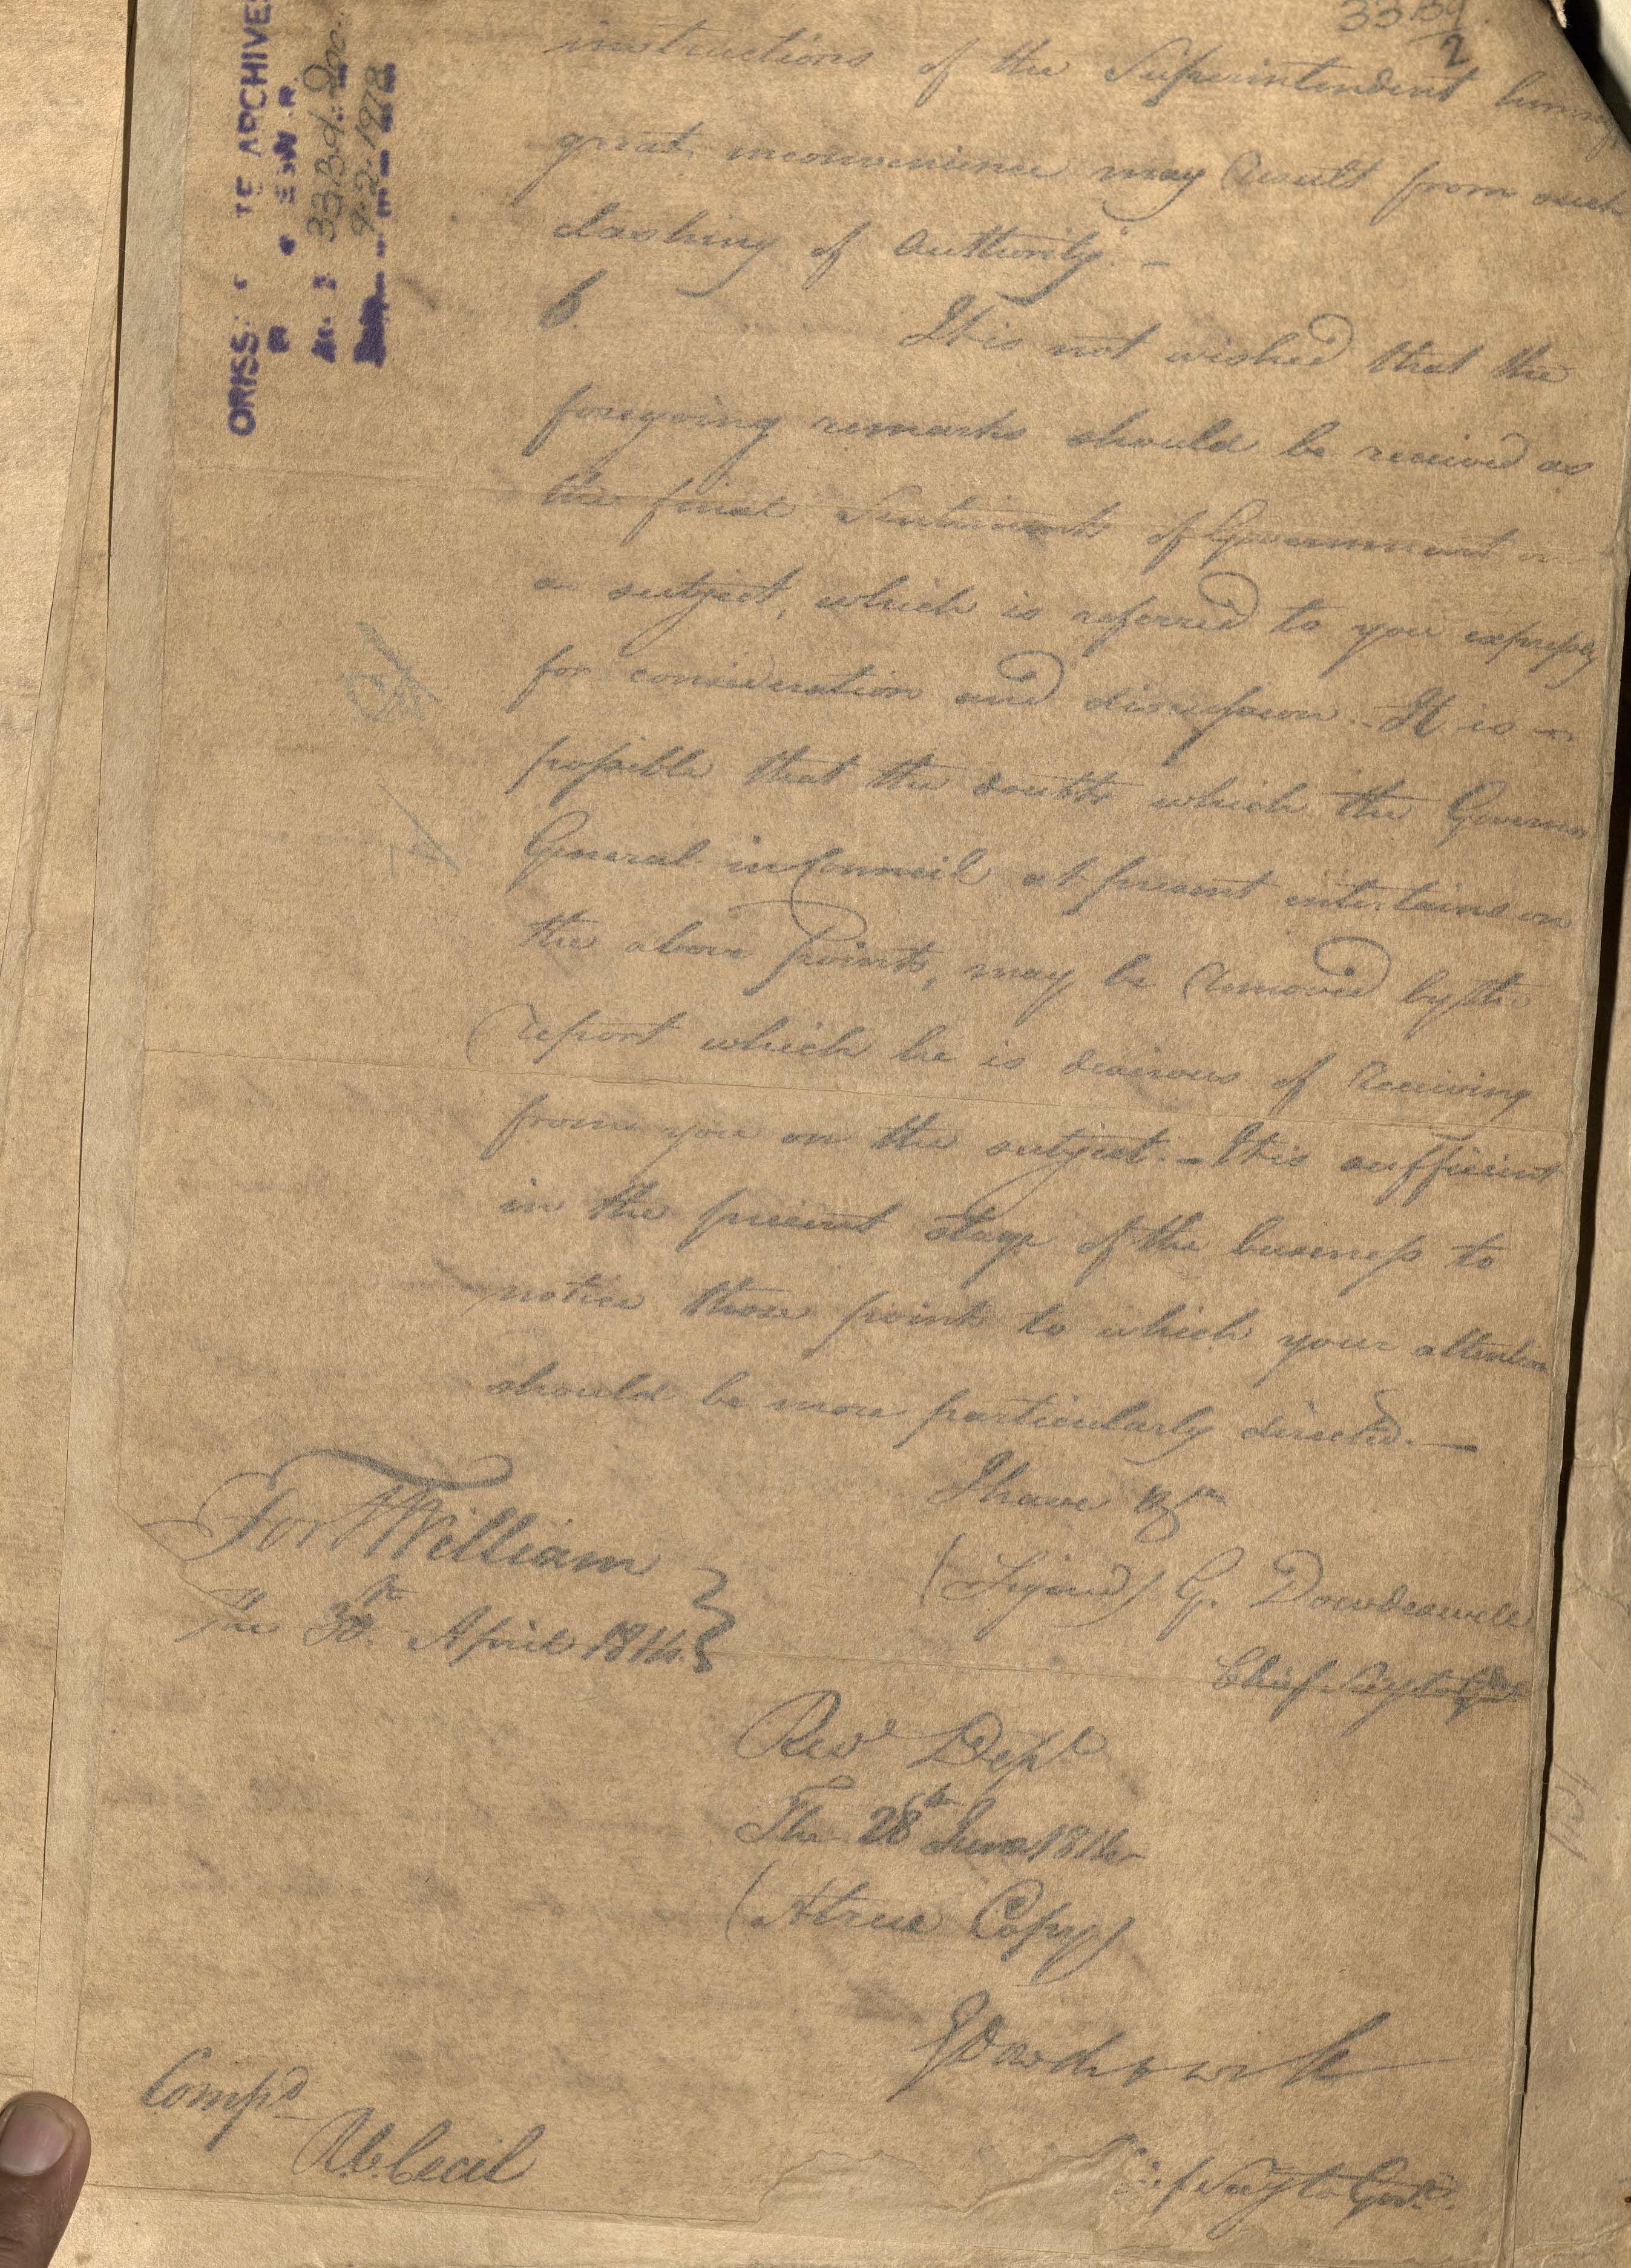 33 Bd.
2
instructions of the Superintendent
great inconvenience may result from such
clashing of Authority. —
6. It is not wished that the
foregoing remarks should be received as
the final Sentiments of Government on
a subject, which is referred to you expressly
for consideration and discussion. - It is
possible that the doubts which the Governor
General in Council at present entertains on
the above Points, may be removed by the
report which he is desirous of receiving
from you on the subject. - It is sufficient
in the present stage of the business to
notice those points to which your attention
should be more particularly directed. —
I have &ca
Fort William
The 30th April 1814.
(Signed) G. Dowdeswell
Chief Secy to Govt
Revl Dept
The 28th June 1814
(A true Copy)
G Dowdeswell
Secy to Govt
Compd
R. Cecil
ARCHIVES
33 Bd. Doc.
9.2.1978